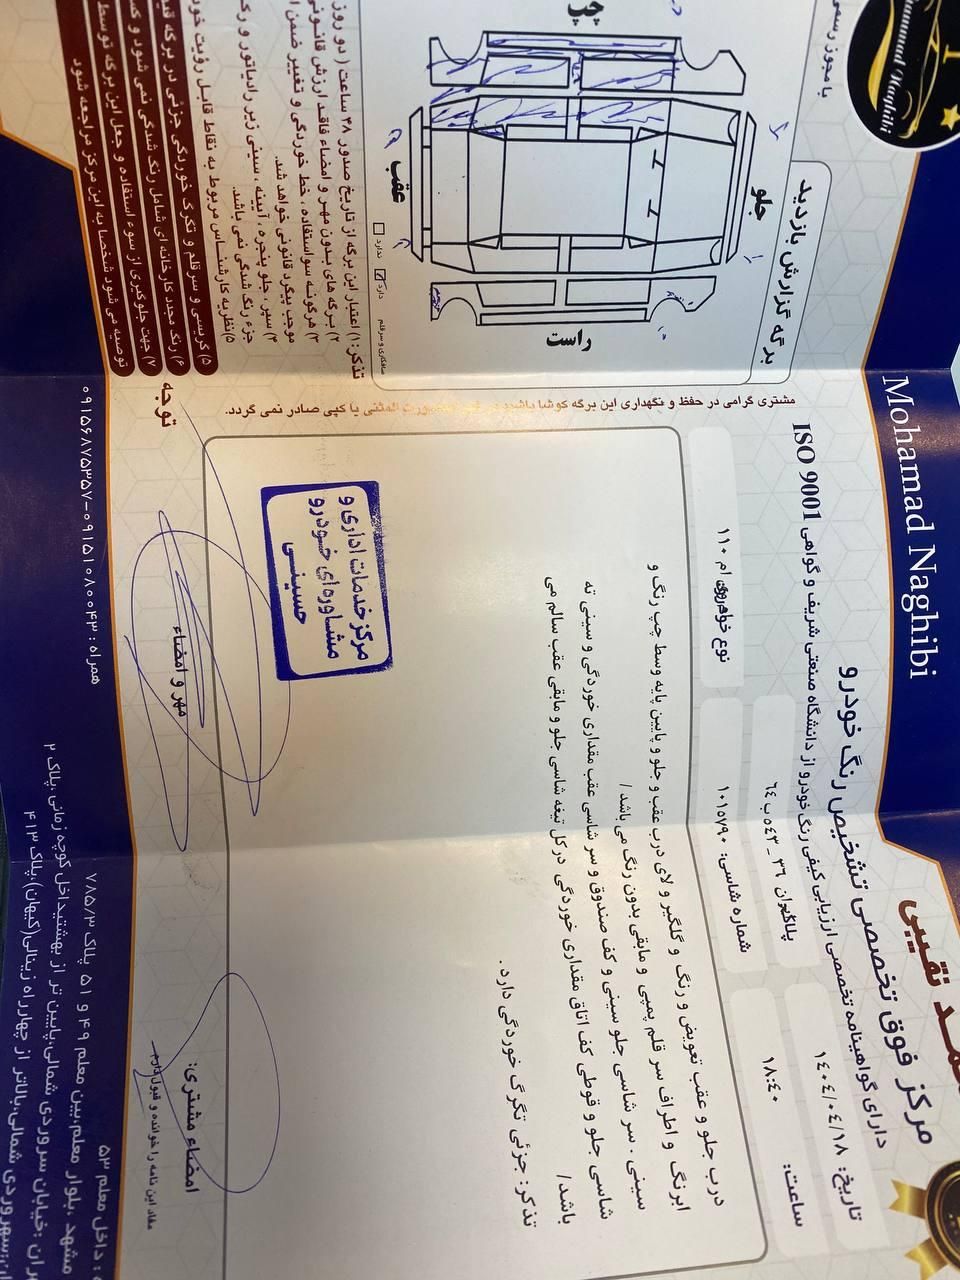 Mohammad Naghibi
با مجوز رسمی
Mohamad Naghibi
نقیبی
مرکز فوق تخصصی تشخیص رنگ خودرو
دارای گواهینامه تخصصی ارزیابی کیفی رنگ خودرو از دانشگاه صنعتی شریف و گواهی ISO 9001
تاریخ: ۱۴۰۴/۰۴/۱۸
ساعت: ۱۸:۴۰
شماره شاسی: ۱۰۱۵۷۹۰
نوع خودرو: ام ۱۱۰
برگه گزارش بازدید
چپ
جلو
عقب
راست
صافکاری و سرقلم
دارد
ندارد
مشتری گرامی در حفظ و نگهداری این برگه کوشا باشید المثنی یا کپی صادر نمی گردد.
درب جلو و عقب تعویض و رنگ و گلگیر و لای درب عقب و جلو و پایین پایه وسط چپ رنگ و
ابرنگ و اطراف سر قلم پمپی و مابقی بدون رنگ می باشد /
سینی . سر شاسی جلو سینی و کف صندوق و سر شاسی عقب مقداری خوردگی و سینی ته
شاسی جلو و قوطی کف اتاق مقداری خوردگی در کل تیغه شاسی جلو و مابقی عقب سالم می
باشد/
تذکر: جزئی تگرگ خوردگی دارد.
مرکز خدمات اداری و
مشاوره ای خودرو
حسینی
مهر و امضاء
امضاء مشتری:
مفاد این نامه را خوانده و قبول دارم
تذکر: ۱) اعتبار این برگه از تاریخ صدور ۴۸ ساعت (دو روز
۲) برگه های بدون مهر و امضاء فاقد ارزش قانونی
۳) هرگونه سواستفاده، خط خوردگی و تغییر ضمن ا
موجب پیگرد قانونی خواهد شد.
۴) سپر، جلو پنجره، آیینه، سینی زیر رادیاتور و رک
جزء رنگ شدگی نمی باشد.
۵) نظریه کارشناس مربوط به نقاط قابل رؤیت خود
۵) کریسی و سرقلم و تگرگ خوردگی جزئی در برگه قید
۶) رنگ مجدد کارخانه ای شامل رنگ شدگی نمی شود و کس
۷) جهت جلوگیری از سوء استفاده و جعل این برگه توسط
توصیه می شود شخصا به این مرکز مراجعه شود
توجه
همراه: ۰۹۱۵۱۰۸۰۰۴۳-۰۹۱۵۶۸۷۵۳۵۷
: داخل معلم ۵۳
مشهد، بلوار معلم، بین معلم ۴۹ و ۵۱ پلاک ۷۸۵/۳